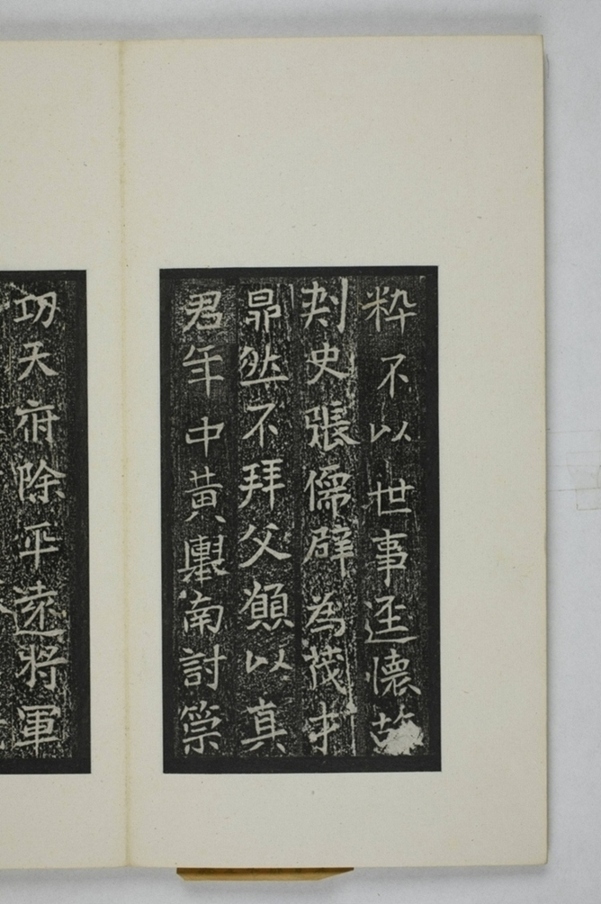 粹不以世事逕懷
刺史張儒辟為茂才
昂然不拜父顏以真
君年中黃輿南討策
功天府除平遠將軍